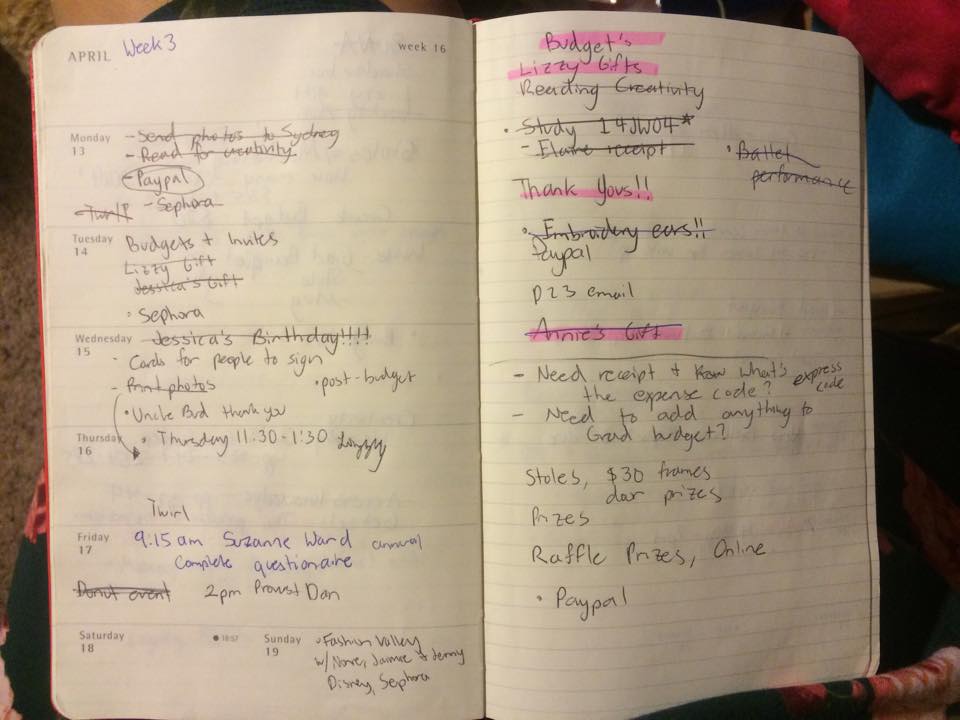 APRIL Week 3 week 16
Monday
13
- Send photos to Sydney
- Read for creativity
- Paypal
Twirl - Sephora
Tuesday
14
Budgets + Invites
Lizzy Gift
Jessica's Gift
• Sephora
Wednesday
15
Jessica's Birthday!!!!
- Cards for people to sign
- Print photos • post-budget
• Uncle Bud thank you
Thursday
16
• Thursday 11:30 - 1:30 Lizzy
Twirl
Friday
17
9:15 am Suzanne Ward annual
Complete questionaire
Donut event 2pm Provost Dan
Saturday
18
18:57
Sunday
19
• Fashion Valley
w/ Jaimie + Jenny
Disney, Sephora
Budget's
Lizzy Gifts
Reading Creativity
• Study 14JW04*
- Elaine receipt
• Ballet
performance
Thank Yous!!
• Embroidery ears!!
Paypal
D23 email
Annie's Gift
- Need receipt + know what's
the expense code? express
code
- Need to add anything to
Grad budget?
Stoles, $30 frames
door prizes
Prizes
Raffle Prizes, Online
• Paypal